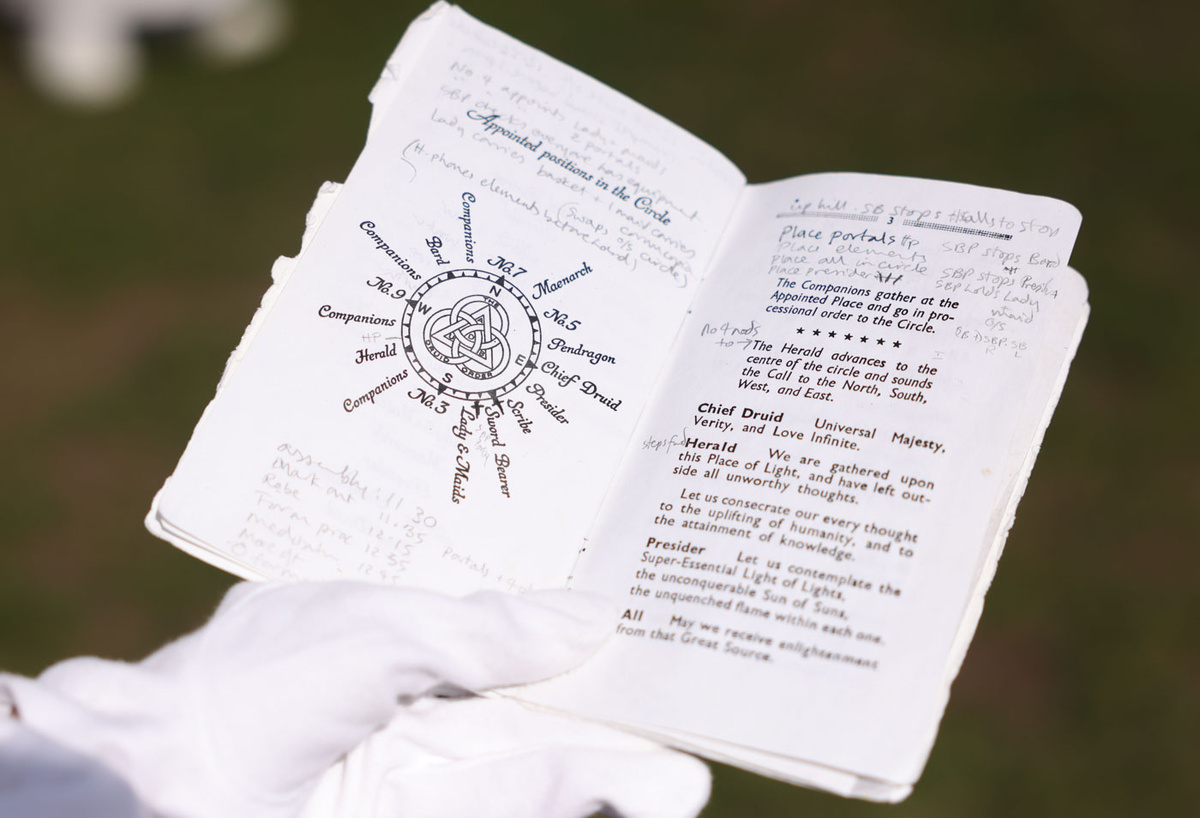 No 4 appoints Lady + maids
2 portals
SBP checks everyone has equipment
Appointed positions in the Circle
Lady carries basket + 1 maid carries cornucopia
(H. phones elements before hand)
(Swaps o/s circle)
Companions
Companions
Bard
No. 7
Maenarch
No. 9
No. 5
Companions
HP
Pendragon
Herald
Chief Druid
Companions
Presider
No. 3
Scribe
Sword Bearer
Lady & Maids
N
E
S
W
THE
DRUID ORDER
assembly: 11 30
Mark out 11.45
Robe 12.15
Form proc 12 35
portals +
12.45
up hill. SB stops Halls to stop
3
Place portals HP
SBP stops Bard
Place elements
Place all in circle
SBP stops
Place presider
SBP holds Lady
maid
o/s
The Companions gather at the
Appointed Place and go in pro-
cessional order to the Circle.
★ ★ ★ ★ ★ ★ ★
no 4 nods
to →
The Herald advances to the
centre of the circle and sounds
the Call to the North, South,
West, and East.
Chief Druid Universal Majesty,
Verity, and Love Infinite.
steps fwd
Herald We are gathered upon
this Place of Light, and have left out-
side all unworthy thoughts.
Let us consecrate our every thought
to the uplifting of humanity, and to
the attainment of knowledge.
Presider Let us contemplate the
Super-Essential Light of Lights,
the unconquerable Sun of Suns,
the unquenched flame within each one.
All May we receive enlightenment
from that Great Source.